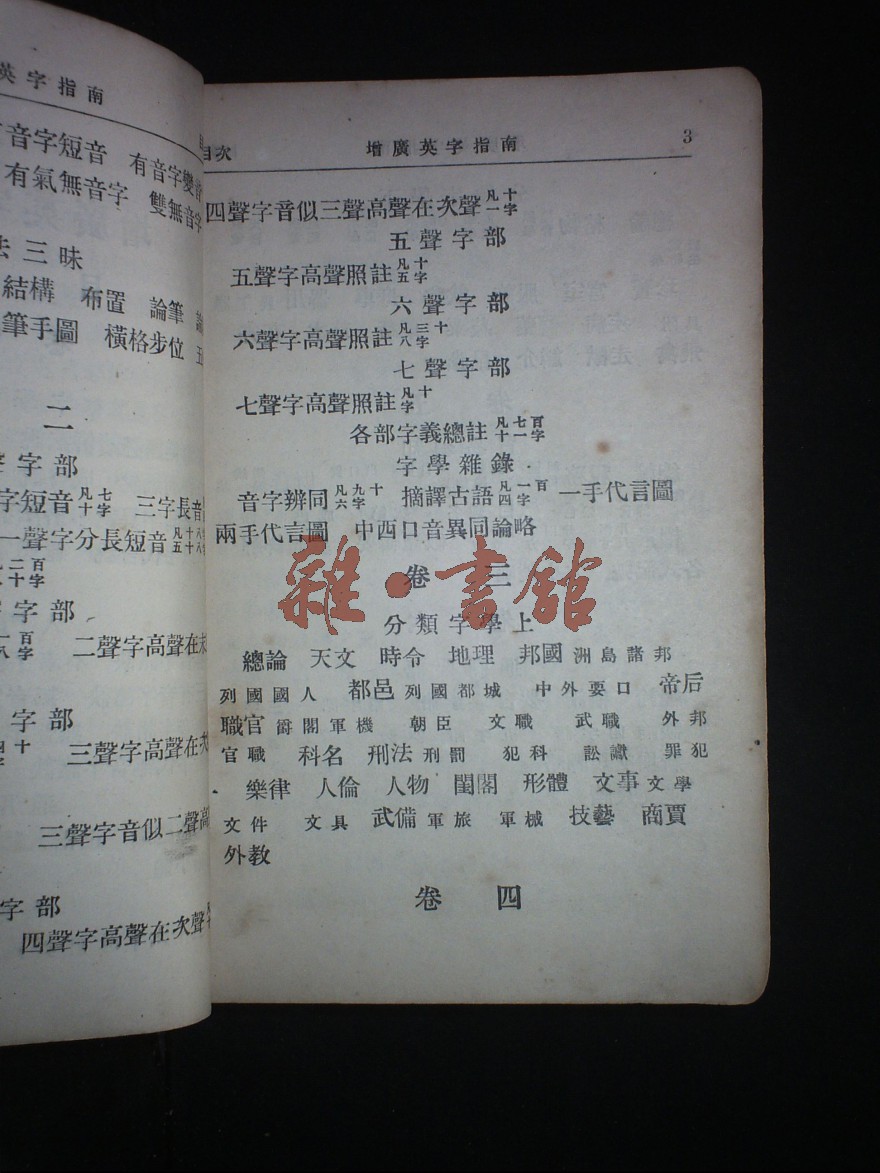 英字指南
音字短音 有音字變音
有氣無音字 雙無音字
法三昧
結構 布置 論筆
筆手圖 橫格步位
二
聲字部
字短音凡七十字 三字長音
一聲字分長短音
字部
二聲字高聲在末
字部
三聲字高聲在次
三聲字音似二聲高
字部
四聲字高聲在次聲
目次 增廣英字指南 3
四聲字音似三聲高聲在次聲凡十一字
五聲字部
五聲字高聲照註凡十五字
六聲字部
六聲字高聲照註凡三十八字
七聲字部
七聲字高聲照註凡十字
各部字義總註凡七百十一字
字學雜錄
音字辨同凡九十六字 摘譯古語凡一百四字 一手代言圖
兩手代言圖 中西口音異同論略
卷三
分類字學上
總論 天文 時令 地理 邦國 洲島諸邦
列國國人 都邑 列國都城 中外要口 帝后
職官 爵閣軍機 朝臣 文職 武職 外邦
官職 科名 刑法 刑罰 犯科 訟讞 罪犯
樂律 人倫 人物 閨閣 形體 文事 文學
文件 文具 武備 軍旅 軍械 技藝 商賈
外教
卷四
雜·書館